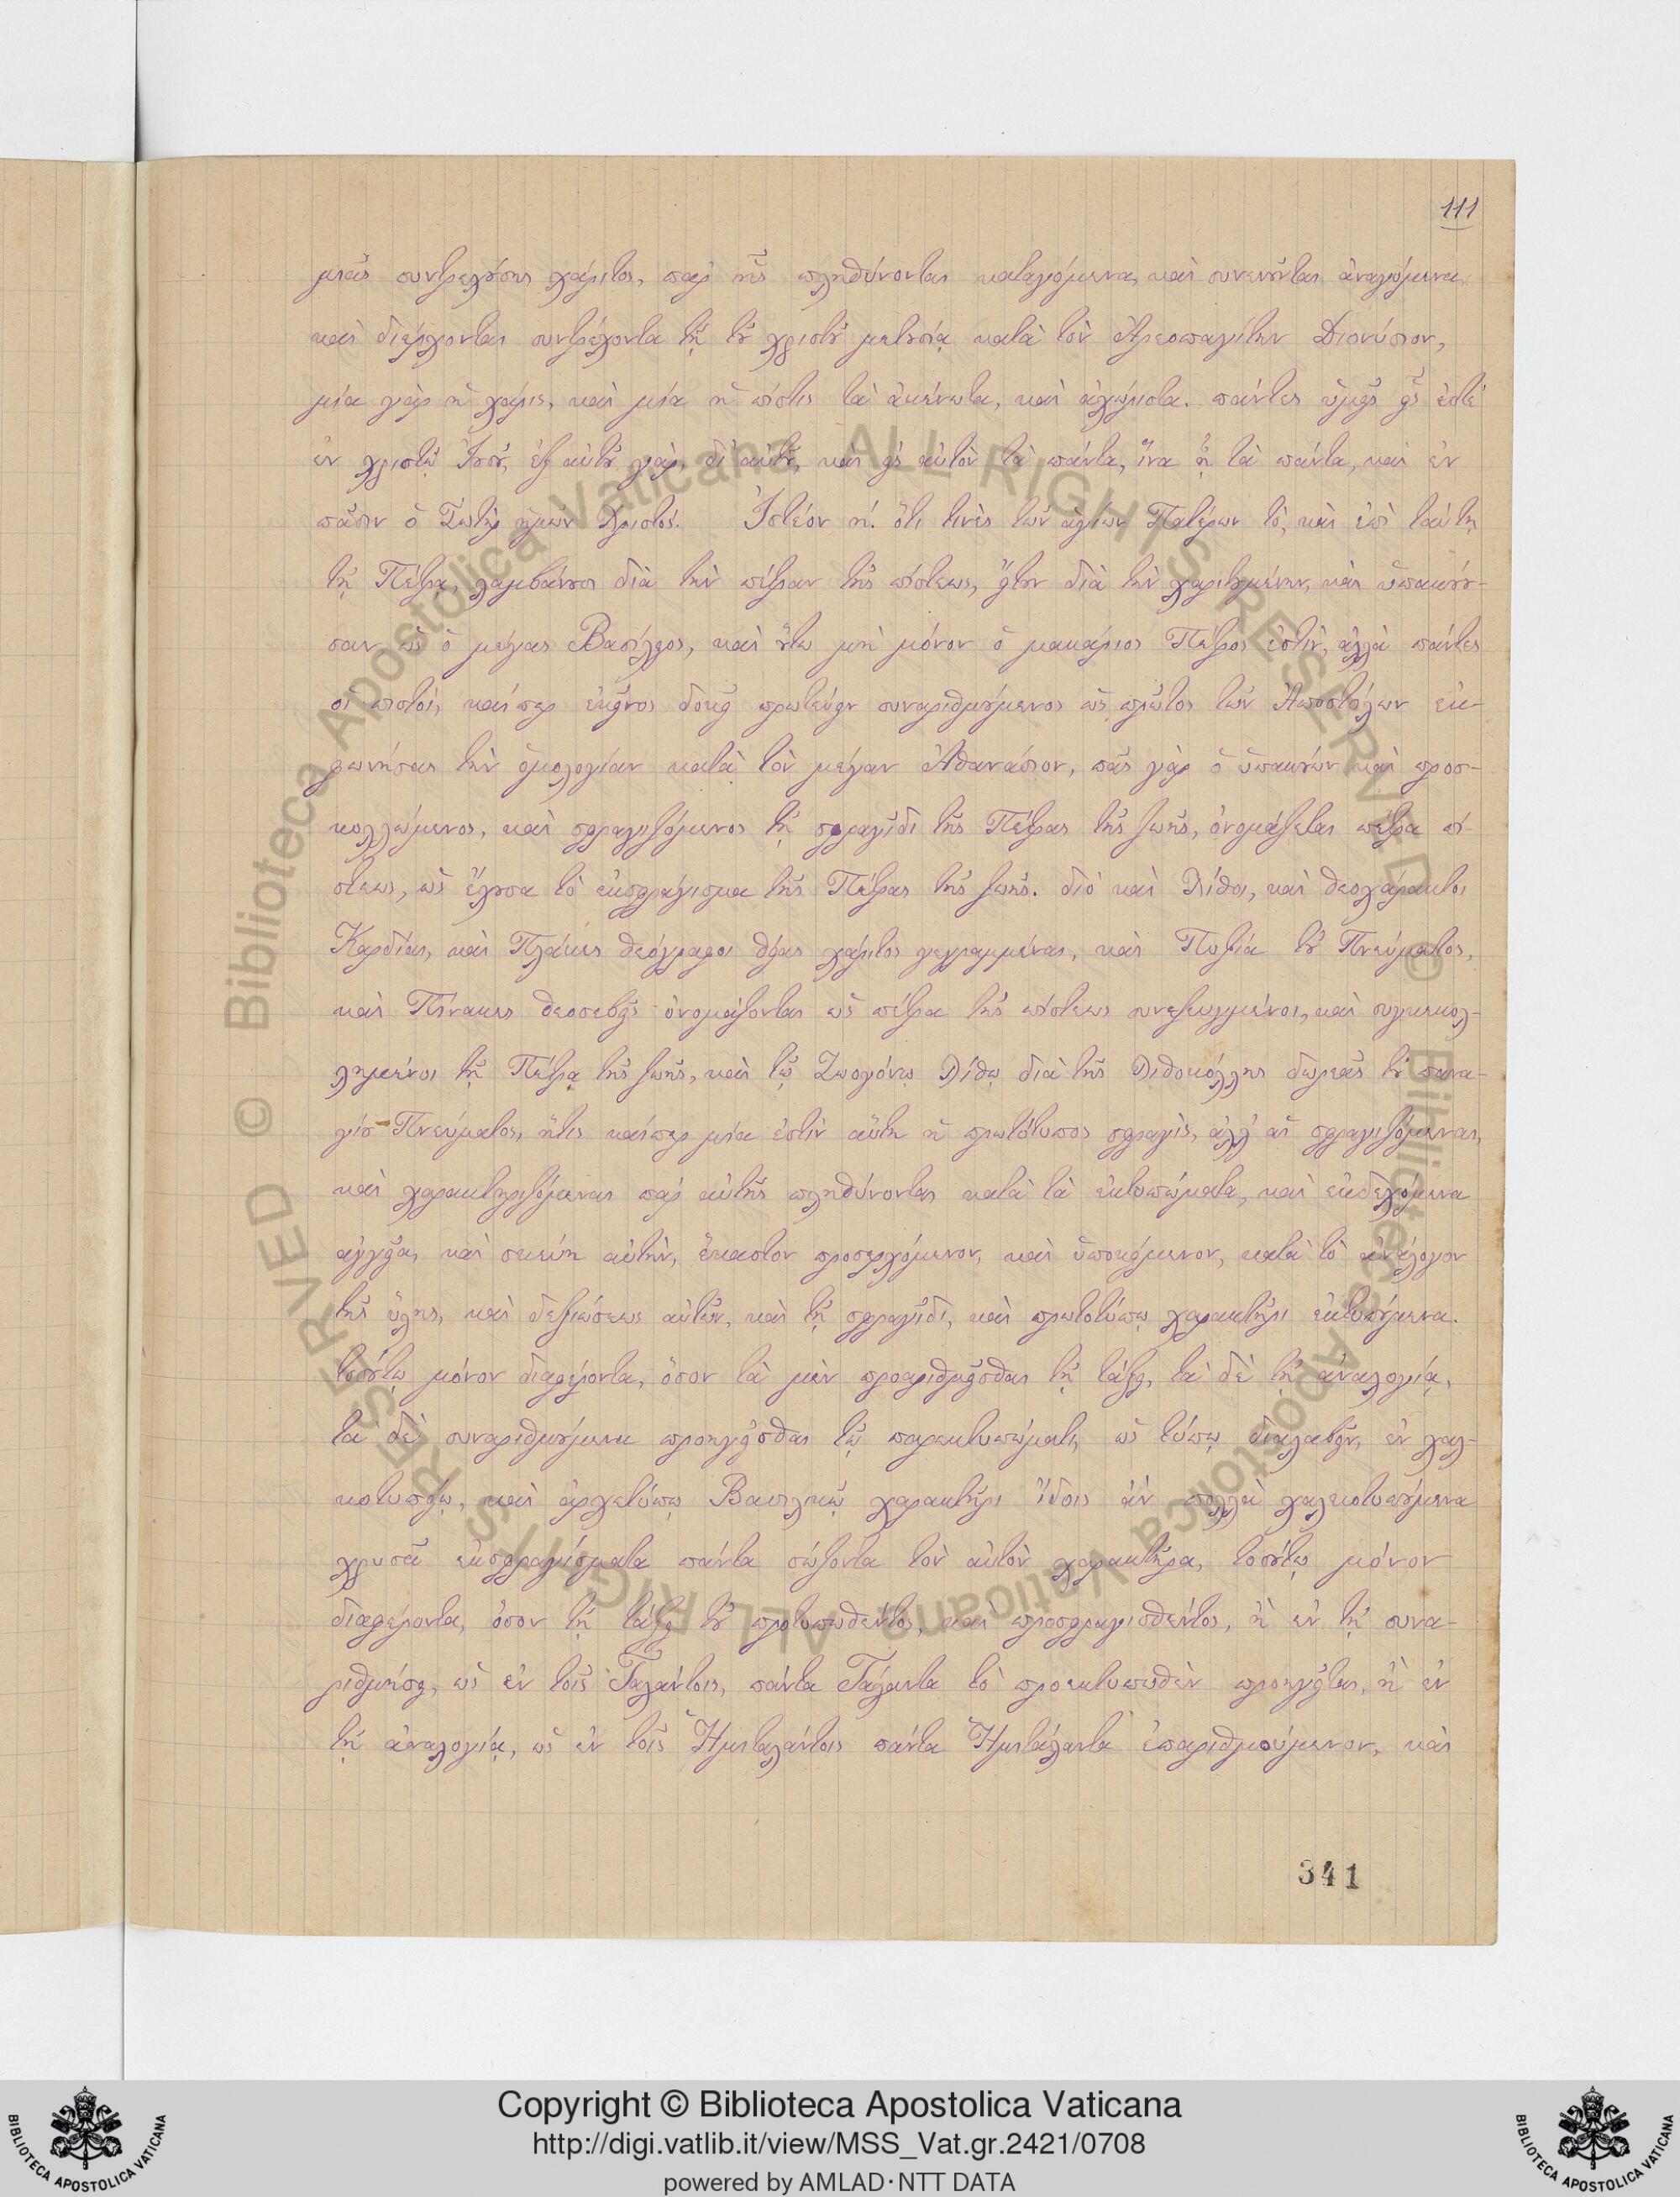 111
μιᾶς συντρεχούσης χάριτος, παρ' ἧς πληθύνονται καταγόμενα, καὶ συνενοῦνται ἀναγόμενα,
καὶ διέρχονται συντρέχοντα τῇ τοῦ χριστοῦ μετουσίᾳ κατὰ τὸν Ἀρεοπαγίτην Διονύσιον,
μία γὰρ ἡ χάρις, καὶ μία ἡ πίστις τὰ ἀκένωτα, καὶ ἀχώριστα. πάντες ὑμεῖς εἷς ἐστέ
ἐν χριστῷ Ἰησοῦ, ἐξ αὐτοῦ γὰρ, δι' αὐτοῦ, καὶ εἰς αὐτὸν τὰ πάντα, ἵνα ᾖ τὰ πάντα, καὶ ἐν
πᾶσιν ὁ Σωτὴρ ἡμῶν Χριστός. Ἰστέον ὅτι τινὲς τῶν ἁγίων Πατέρων τὸ, καὶ ἐπὶ ταύτῃ
τῇ Πέτρᾳ, λαμβάνουσι διὰ τὴν πέτραν τῆς πίστεως, ἤτουν διὰ τὴν χαριτουμένην, καὶ ὑπακούου-
σαν ὡς ὁ μέγας Βασίλειος, καὶ οὕτω μὴ μόνον ὁ μακάριος Πέτρος ἐστὶν, ἀλλὰ πάντες
οἱ πιστοί, καίπερ ἐκεῖνος δοκεῖ πρωτεύειν συναριθμούμενος ὡς πρῶτος τῶν Ἀποστόλων ἐκ-
φωνήσας τὴν ὁμολογίαν κατὰ τὸν μέγαν Ἀθανάσιον, πᾶς γὰρ ὁ ὑπακούων καὶ προσ-
κολλώμενος, καὶ σφραγιζόμενος τῇ σφραγίδι τῆς Πέτρας τῆς ζωῆς, ὀνομάζεται πέτρα πί-
στεως, ὡς ἔχουσα τὸ ἐκσφράγισμα τῆς Πέτρας τῆς ζωῆς. διὸ καὶ Λίθοι, καὶ θεοχάρακτοι
Καρδίαι, καὶ Πλάκες θεόγραφοι θείας χάριτος γεγραμμέναι, καὶ Πυξία τοῦ Πνεύματος,
καὶ Πίνακες θεοσεβεῖς ὀνομάζονται ὡς πέτρα τῆς πίστεως συνεζευγμένοι, καὶ συγκεκολ-
λημένοι τῇ Πέτρᾳ τῆς ζωῆς, καὶ τῷ Ζωογόνῳ Λίθῳ διὰ τῆς Λιθοκόλλης δωρεᾶς τοῦ πανα-
γίου Πνεύματος, ἥτις καίπερ μία ἐστὶν αὕτη ἡ πρωτότυπος σφραγὶς, ἀλλ' αἱ σφραγιζόμεναι,
καὶ χαρακτηριζόμεναι παρ' αὐτῆς πληθύνονται κατὰ τὰ ἐκτυπώματα, καὶ ἐκδεχόμενα
ἀγγεῖα, καὶ σκεύη αὐτὴν, ἕκαστον προσερχόμενον, καὶ ὑποκείμενον, κατὰ τὸ ἀνάλογον
τῆς ὕλης, καὶ δεξιώσεως αὐτῶν, καὶ τῇ σφραγίδι, καὶ πρωτοτύπῳ χαρακτῆρι ἐκτυπούμενα.
τοσούτῳ μόνον διαφέροντα, ὅσον τὰ μὲν προαριθμεῖσθαι τῇ τάξει, τὰ δὲ τῇ ἀναλογίᾳ,
τὰ δὲ συναριθμούμενα προηγεῖσθαι τῷ παρεκτυπώματι, ὡς τύπῳ διαλαβεῖν, ἐν χαλ-
κοτυπείῳ, καὶ ἀρχετύπῳ Βασιλικῷ χαρακτῆρι ἴδοις ἂν πολλὰ χαλκοτυπούμενα
χρυσᾶ ἐκσφραγίσματα πάντα σώζοντα τὸν αὐτὸν χαρακτῆρα, τοσούτῳ μόνον
διαφέροντα, ὅσον τῇ τάξει τοῦ προτυπωθέντος, καὶ προσφραγισθέντος, ἢ ἐν τῇ συνα-
ριθμήσει, ὡς ἐν τοῖς Ταλάντοις, πάντα Τάλαντα τὸ προεκτυπωθὲν προηγεῖται, ἢ ἐν
τῇ ἀναλογίᾳ, ὡς ἐν τοῖς Ἡμιταλάντοις πάντα Ἡμιτάλαντα ἐπαριθμούμενον, καὶ
341
© Biblioteca Apostolica Vaticana ALL RIGHTS RESERVED
© Biblioteca Apostolica Vaticana ALL RIGHTS RESERVED
Copyright © Biblioteca Apostolica Vaticana
http://digi.vatlib.it/view/MSS_Vat.gr.2421/0708
powered by AMLAD·NTT DATA
BIBLIOTECA APOSTOLICA VATICANA
BIBLIOTECA APOSTOLICA VATICANA